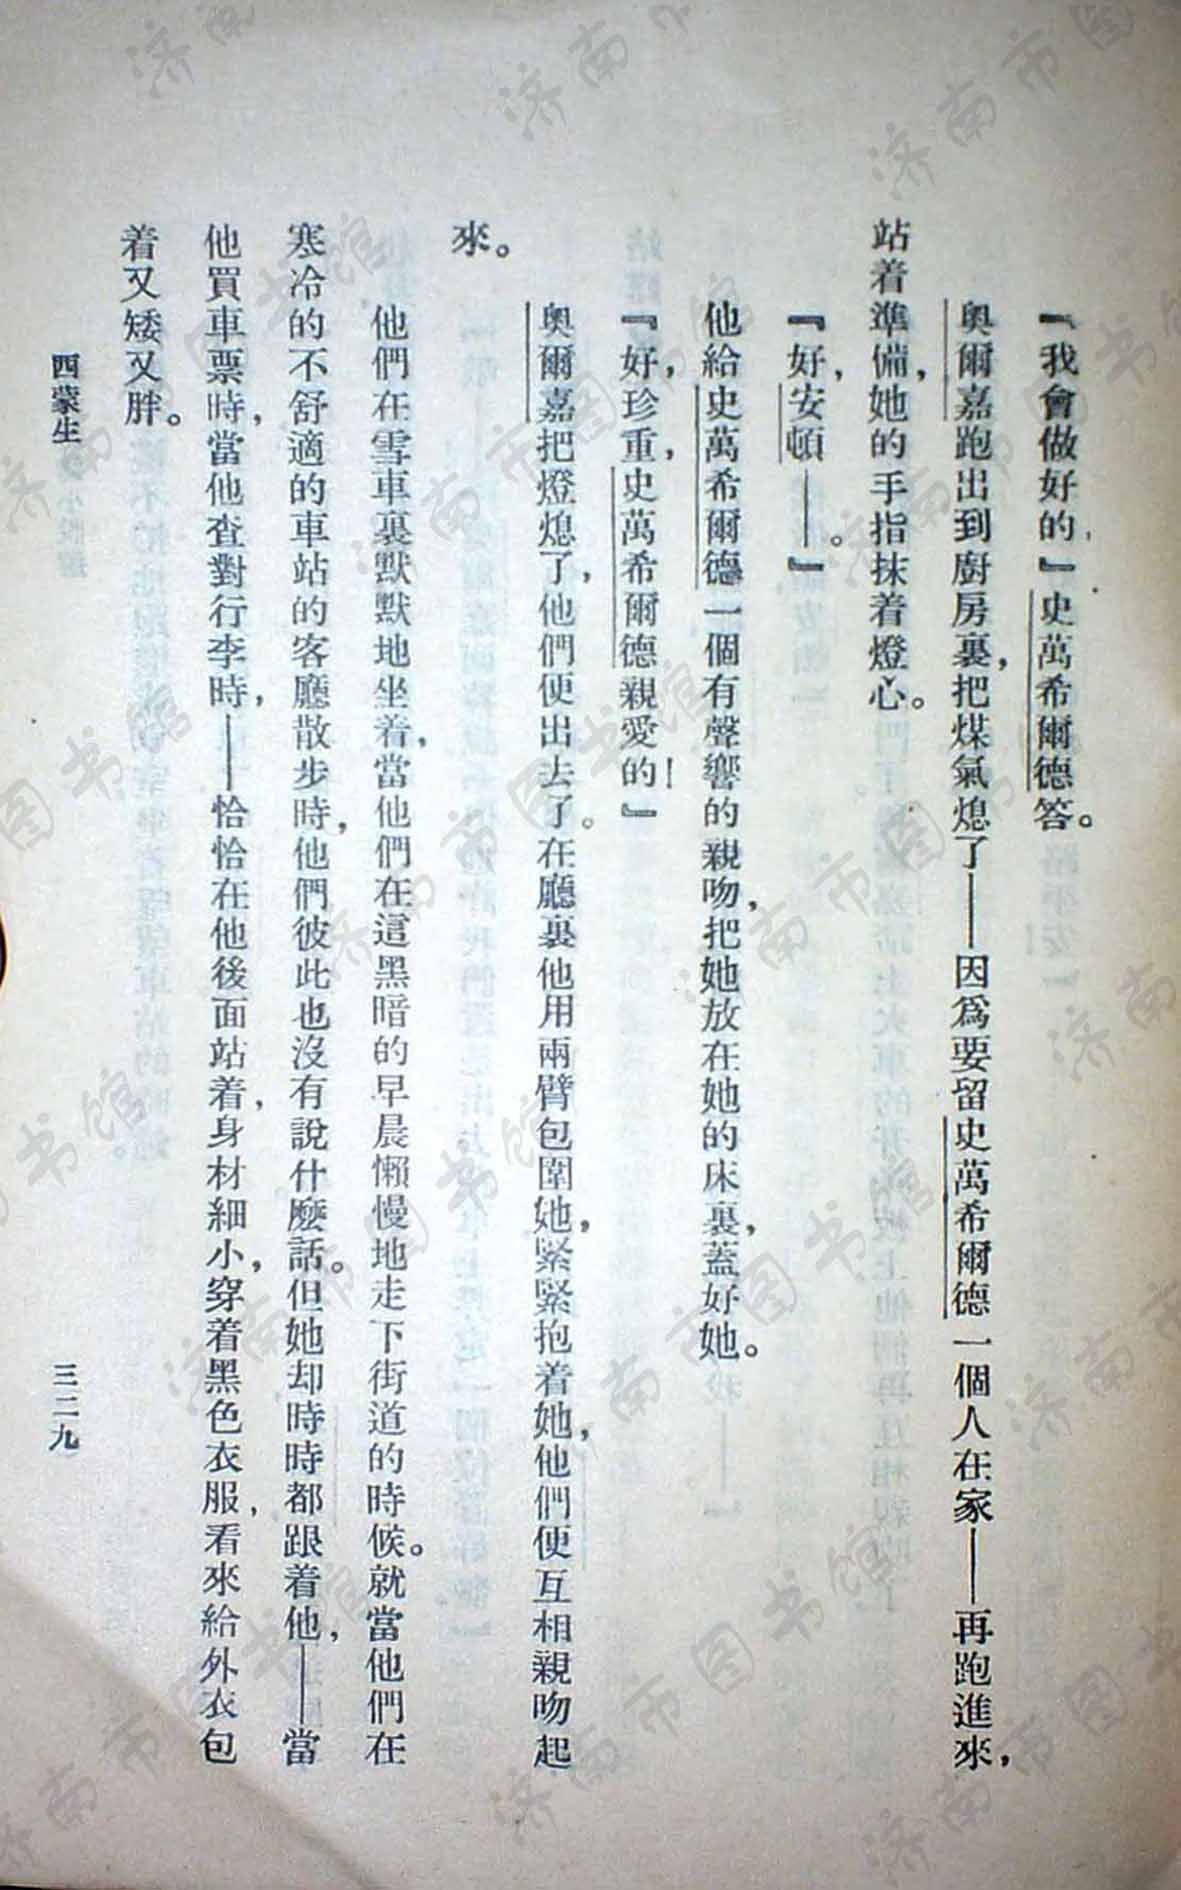 『我會做好的』史萬希爾德答。
奧爾嘉跑出到廚房裏，把煤氣熄了——因爲要留史萬希爾德一個人在家——再跑進來，
站着準備，她的手指抹着燈心。
『好，安頓——。』
他給史萬希爾德一個有聲響的親吻，把她放在她的床裏，蓋好她。
『好，珍重，史萬希爾德親愛的！』
奧爾嘉把燈熄了，他們便出去了。在廳裏他用兩臂包圍她，緊緊抱着她，他們便互相親吻起
來。
他們在雪車裏默默地坐着，當他們在這黑暗的早晨懶慢地走下街道的時候。就當他們在
寒冷的不舒適的車站的客廳散步時，他們彼此也沒有說什麼話。但她却時時都跟着他，——當
他買車票時，當他查對行李時，——恰恰在他後面站着，身材細小，穿着黑色衣服，看來給外衣包
着又矮又胖。
四蒙生
三二九
济南市图书馆